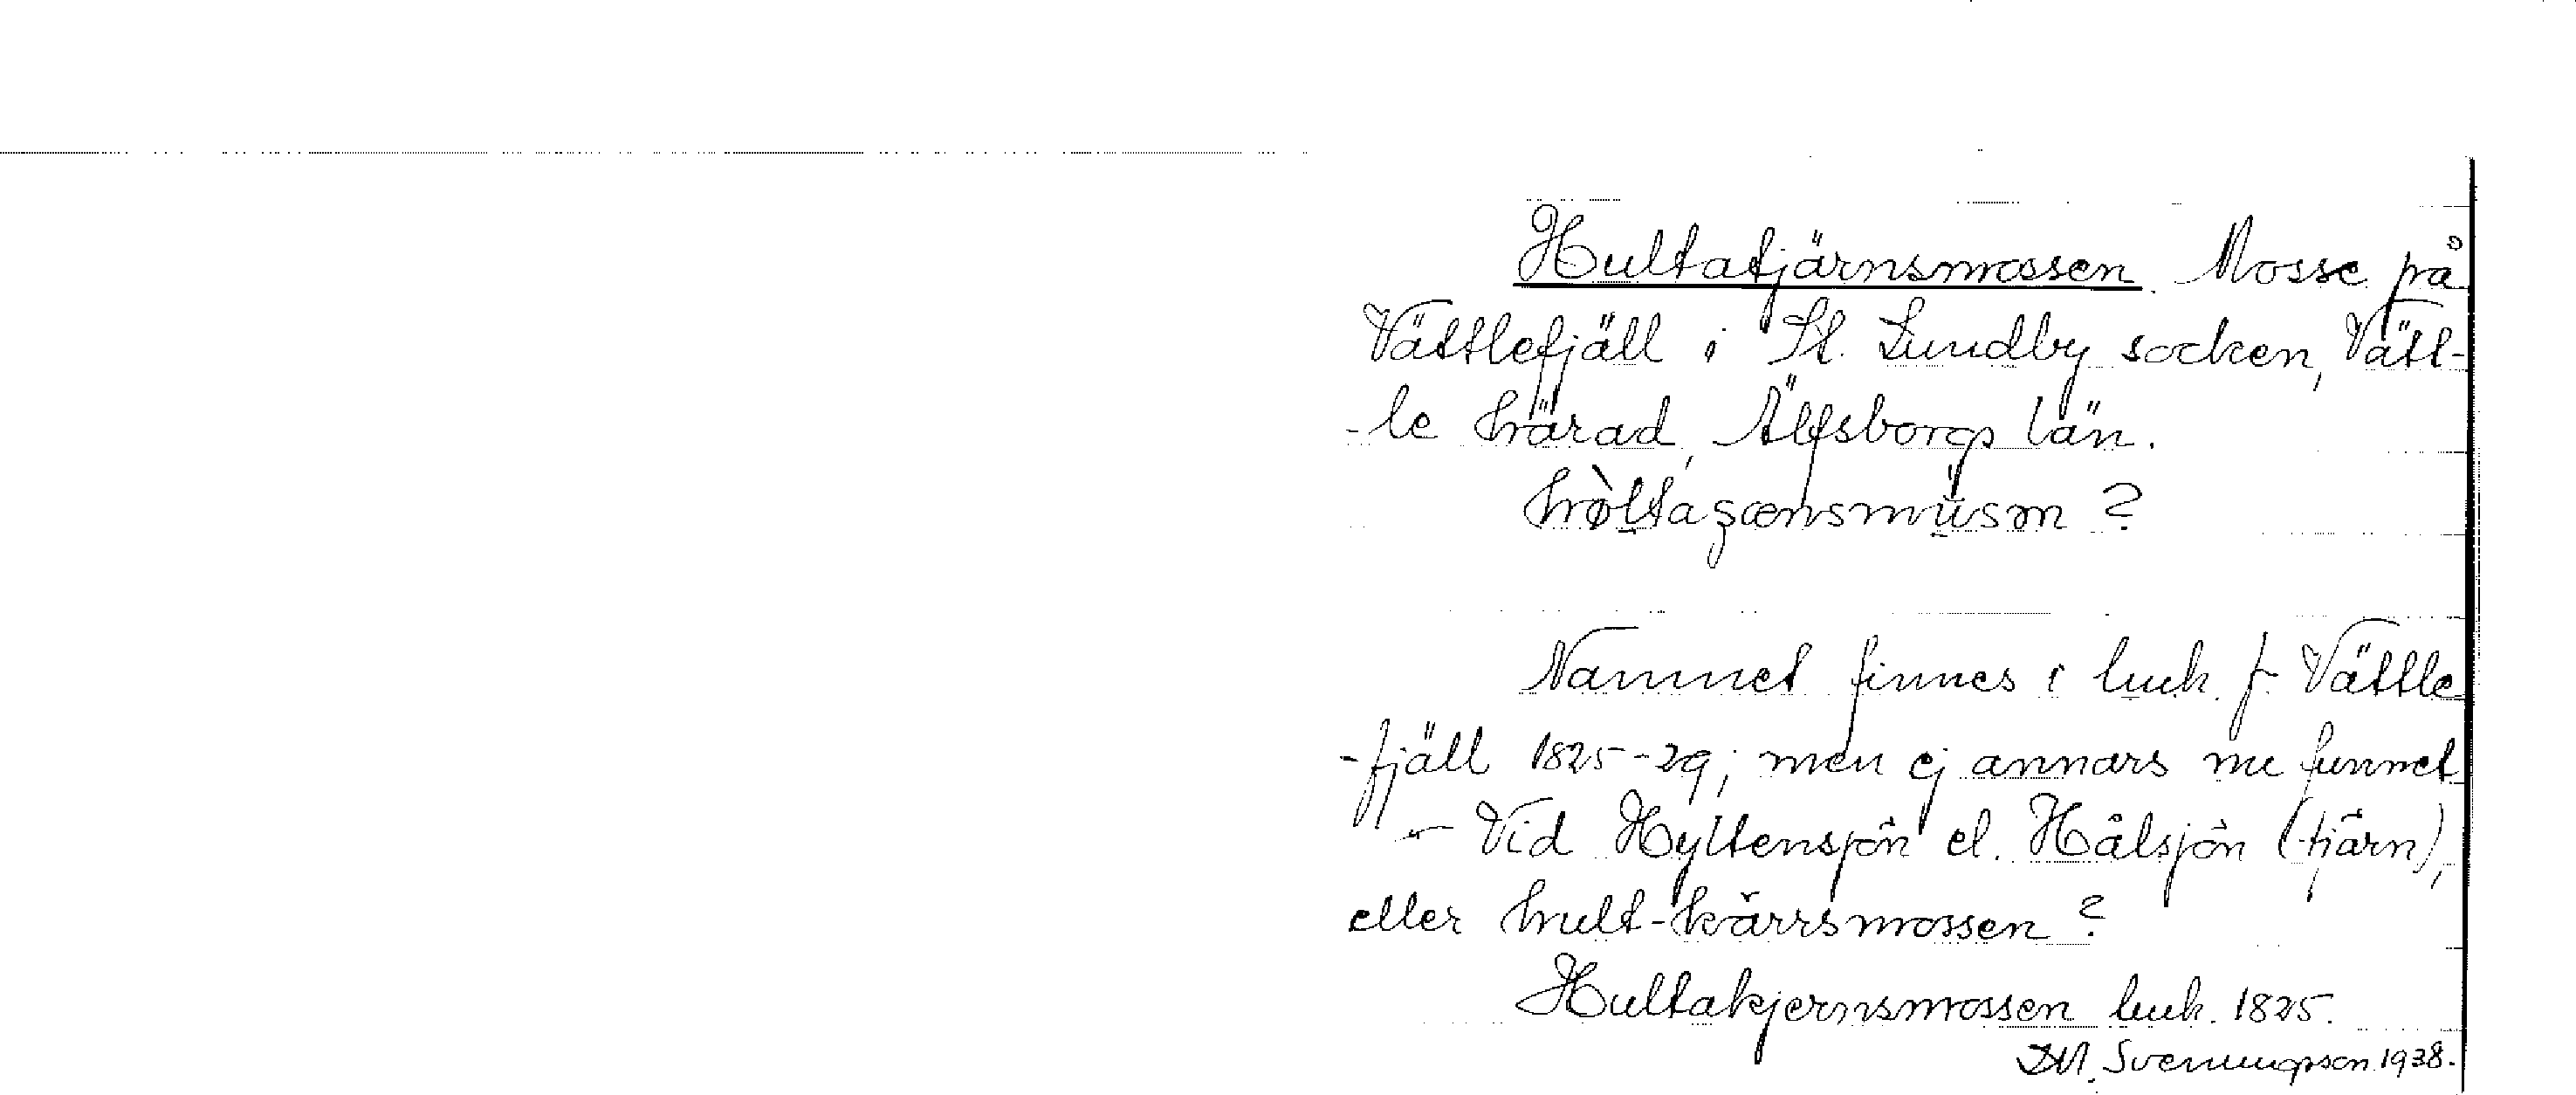 Hultatjärnsmossen. Mosse på
Vättlefjäll i St. Lundby socken, Vätt-
-le härad, Älfsborgs län.
?
Namnet finnes i luuk. f. Vättle
-fjäll 1825-29; men ej annars nu funnet
- Vid Hyltensjön el. Hålsjön (-tjärn),
eller hult-kärrsmossen?
Hultakjernsmossen luuk. 1825.
Svenungsson 1938.